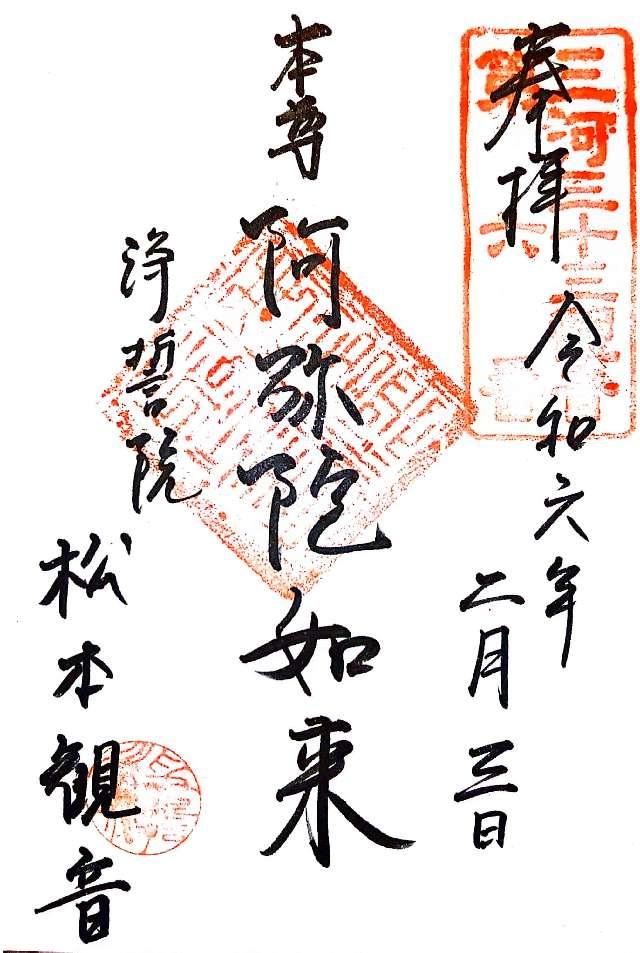 奉拝
令和六年
二月三日
三河三十三観音
本尊
阿弥陀如来
浄誓院
松本観音